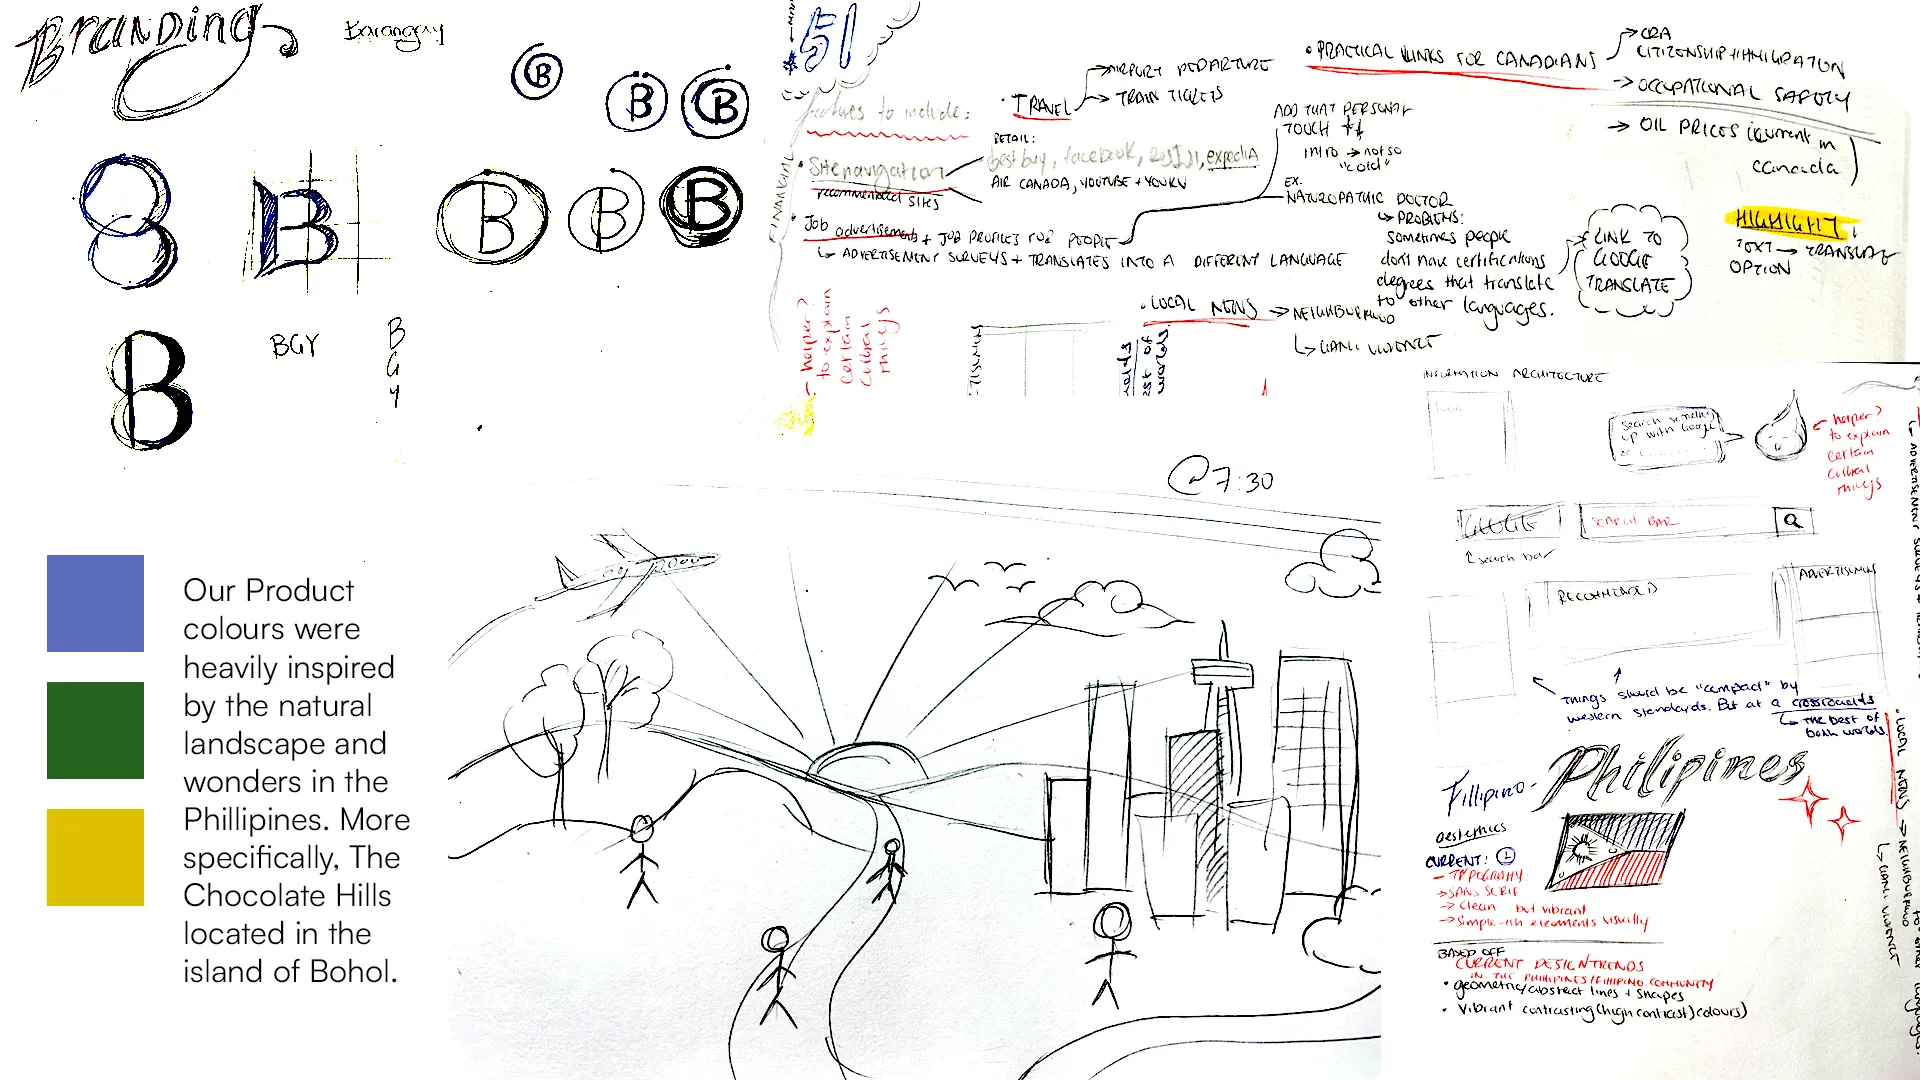 Branding
Barangay
B
B
B
B
B
B
B
B
B
BGY
B
G
Y
Our Product
colours were
heavily inspired
by the natural
landscape and
wonders in the
Phillipines. More
specifically, The
Chocolate Hills
located in the
island of Bohol.
51
FINANCIAL
features to include:
• TRAVEL
→ AIRPORT DEPARTURE
→ TRAIN TICKETS
• PRACTICAL LINKS FOR CANADIANS
→ CRA
CITIZENSHIP + IMMIGRATION
→ OCCUPATIONAL SAFETY
→ OIL PRICES (current in
canada)
• Site navigation
recommended sites
RETAIL:
best buy, facebook, expedia
AIR CANADA, YOUTUBE + YOUKU
• Job advertisements + JOB PROFILES FOR PEOPLE
↳ ADVERTISEMENT SURVEYS + TRANSLATES INTO A DIFFERENT LANGUAGE
ADD THAT PERSONAL
TOUCH
intro → not so
"cold"
EX.
NATUROPATHIC DOCTOR
↳ PROBLEMS:
sometimes people
don't have certifications
degrees that translate
to other languages.
LINK TO
GOOGLE
TRANSLATE
HIGHLIGHT
TEXT → TRANSLATE
OPTION
• LOCAL NEWS → NEIGHBURHOOD
↳ GANG VIOLENCE
- helper?
to explain
certain
cultural
things
@7:30
INFORMATION ARCHITECTURE
Search something
up with Google
← helper?
to explain
certain
cultural
things
GOOGLE
SEARCH BAR
↑ search bar
RECOMMENDED
ADVERTISEMENTS
Things should be "compact" by
western standards. But at a crossroads
↳ the best of
both worlds.
Fillipino-
Philipines
aesthetics
CURRENT:
- TYPOGRAPHY:
→ SANS SERIF
→ Clean but vibrant
→ Simple-ish elements visually
BASED OFF
CURRENT DESIGN TRENDS
IN THE PHILIPINES/FILIPINO COMMUNITY
• geometric/abstract lines + shapes
• Vibrant contrasting (high contrast) colours)
• LOCAL NEWS → NEIGHBURHOOD
↳ GANG VIOLENCE